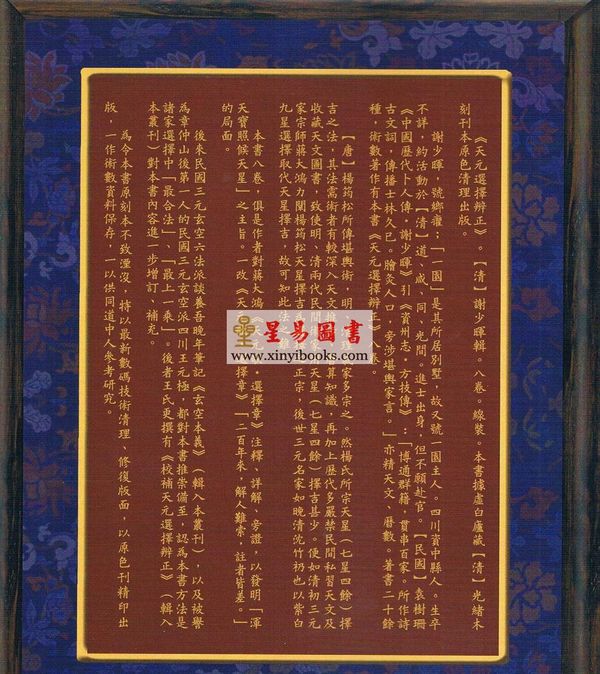 《天元選擇辨正》。【清】謝少暉輯。八卷。線裝。本書據虛白廬藏【清】光緒木
刻刊本原色清理出版。
謝少暉,號鄉癯;「一園」是其所居別墅,故又號一園主人。四川資中縣人。生卒
不詳,約活動於【清】道、咸、同、光間。進士出身,但不願赴官。【民國】袁樹珊
《中國歷代卜人傳.謝少暉》引《資州志.方技傳》:「博通群籍,貫串百家。所作詩
古文詞,傳播士林久已。膾炙人口。旁涉堪輿家言。」亦精天文、曆數。著書二十餘
種,術數著作有本書《天元選擇辨正》
【唐】楊筠松所傳堪輿術,明、清
家多宗之。然楊氏所宗天星(七星四餘)擇
吉之法,其法需術者有較深入天文推
算知識,再加上歷代多嚴禁民間私習天文及
收藏天文圖書,致使明、清兩代民間
天星(七星四餘)擇吉甚少。便如清初三元
家宗師蔣大鴻力闡楊筠松天星擇吉為
正宗,後世三元名家如晚清沈竹礽也以紫白
九星選擇取代天星擇吉,故可知此法之難
本書八卷,俱是作者對蔣大鴻《天元
選擇章》注釋、詳解、旁證,以發明「渾
天寶照候天星」之主旨。一改《天
擇章》「二百年來,解人難索,註者皆差。」
的局面。
後來民國三元玄空六法派談養吾晚年筆記《玄空本義》(輯入本叢刊),以及被譽
為章仲山後第一人的民國三元玄空派四川王元極,都對本書推崇備至,認為本書方法是
諸家選擇中「最合法」、「最上一乘」。後者王氏更撰有《校補天元選擇辨正》(輯入
本叢刊)對本書內容進一步增訂、補充。
為令本書原刻本不致湮沒,特以最新數碼技術清理、修復版面,以原色刊精印出
版,一作術數資料保存,一以供同道中人參考研究。
星易圖書
www.xinyibooks.com